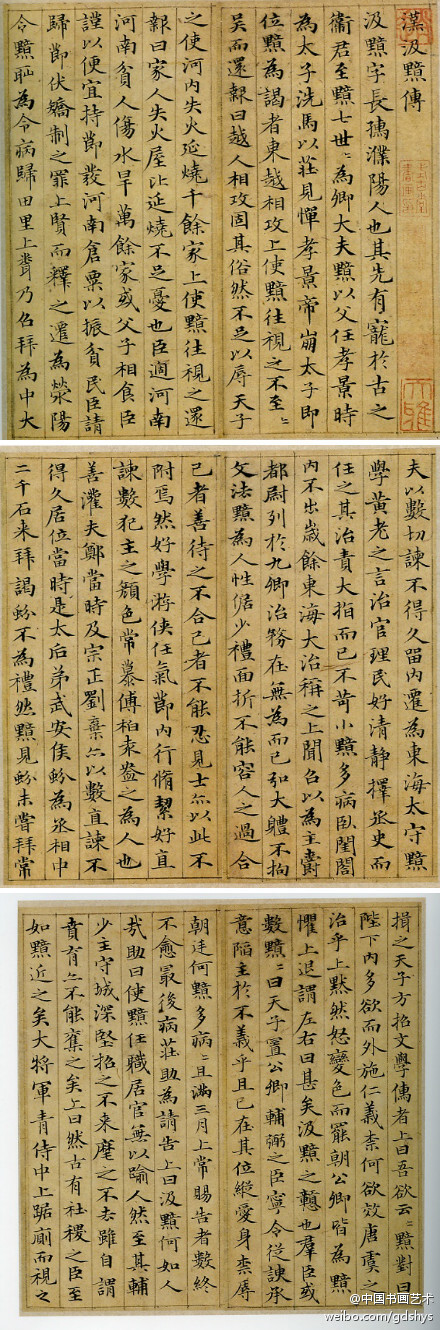 漢汲黯傳
汲黯字長孺濮陽人也其先有寵於古之
衞君至黯七世〻為卿大夫黯以父任孝景時
為太子洗馬以莊見憚孝景帝崩太子即
位黯為謁者東越相攻上使黯往視之不至〻
吳而還報曰越人相攻固其俗然不足以辱天子
之使河内失火延燒千餘家上使黯往視之還
報曰家人失火屋比延燒不足憂也臣適河南
河南貧人傷水旱萬餘家或父子相食臣
謹以便宜持節發河南倉粟以振貧民臣請
歸節伏矯制之罪上賢而釋之遷為滎陽
令黯恥為令病歸田里上聞乃召拜為中大
夫以數切諫不得久留内遷為東海太守黯
學黄老之言治官理民好清静擇丞史而
任之其治責大指而已不苛小黯多病臥閨閤
内不出歲餘東海大治稱之上聞召以為主爵
都尉列於九卿治務在無為而已弘大體不拘
文法黯為人性倨少禮面折不能容人之過合
己者善待之不合己者不能忍見士亦以此不
附焉然好學游侠任氣節内行脩絜好直
諫數犯主之顏色常慕傅柏袁盎之為人也
善灌夫鄭當時及宗正劉棄亦以數直諫不
得久居位當時是太后弟武安侯蚡為丞相中
二千石来拜謁蚡不為禮然黯見蚡未嘗拜常
揖之天子方招文學儒者上曰吾欲云〻黯對曰
陛下内多欲而外施仁義柰何欲效唐虞之
治乎上黙然怒變色而罷朝公卿皆為黯
懼上退謂左右曰甚矣汲黯之戇也羣臣或
數黯〻曰天子置公卿輔弼之臣寧令從諛承
意陷主於不義乎且已在其位縱愛身柰辱
朝廷何黯多病〻且滿三月上常賜告者數終
不愈最後病莊助為請告上曰汲黯何如人
㢤助曰使黯任職居官無以踰人然至其輔
少主守城深堅招之不来麾之不去雖自謂
賁育亦不能奪之矣上曰然古有社稷之臣至
如黯近之矣大將軍青侍中上踞廁而視之
@中国书画艺术
weibo.com/gdshys